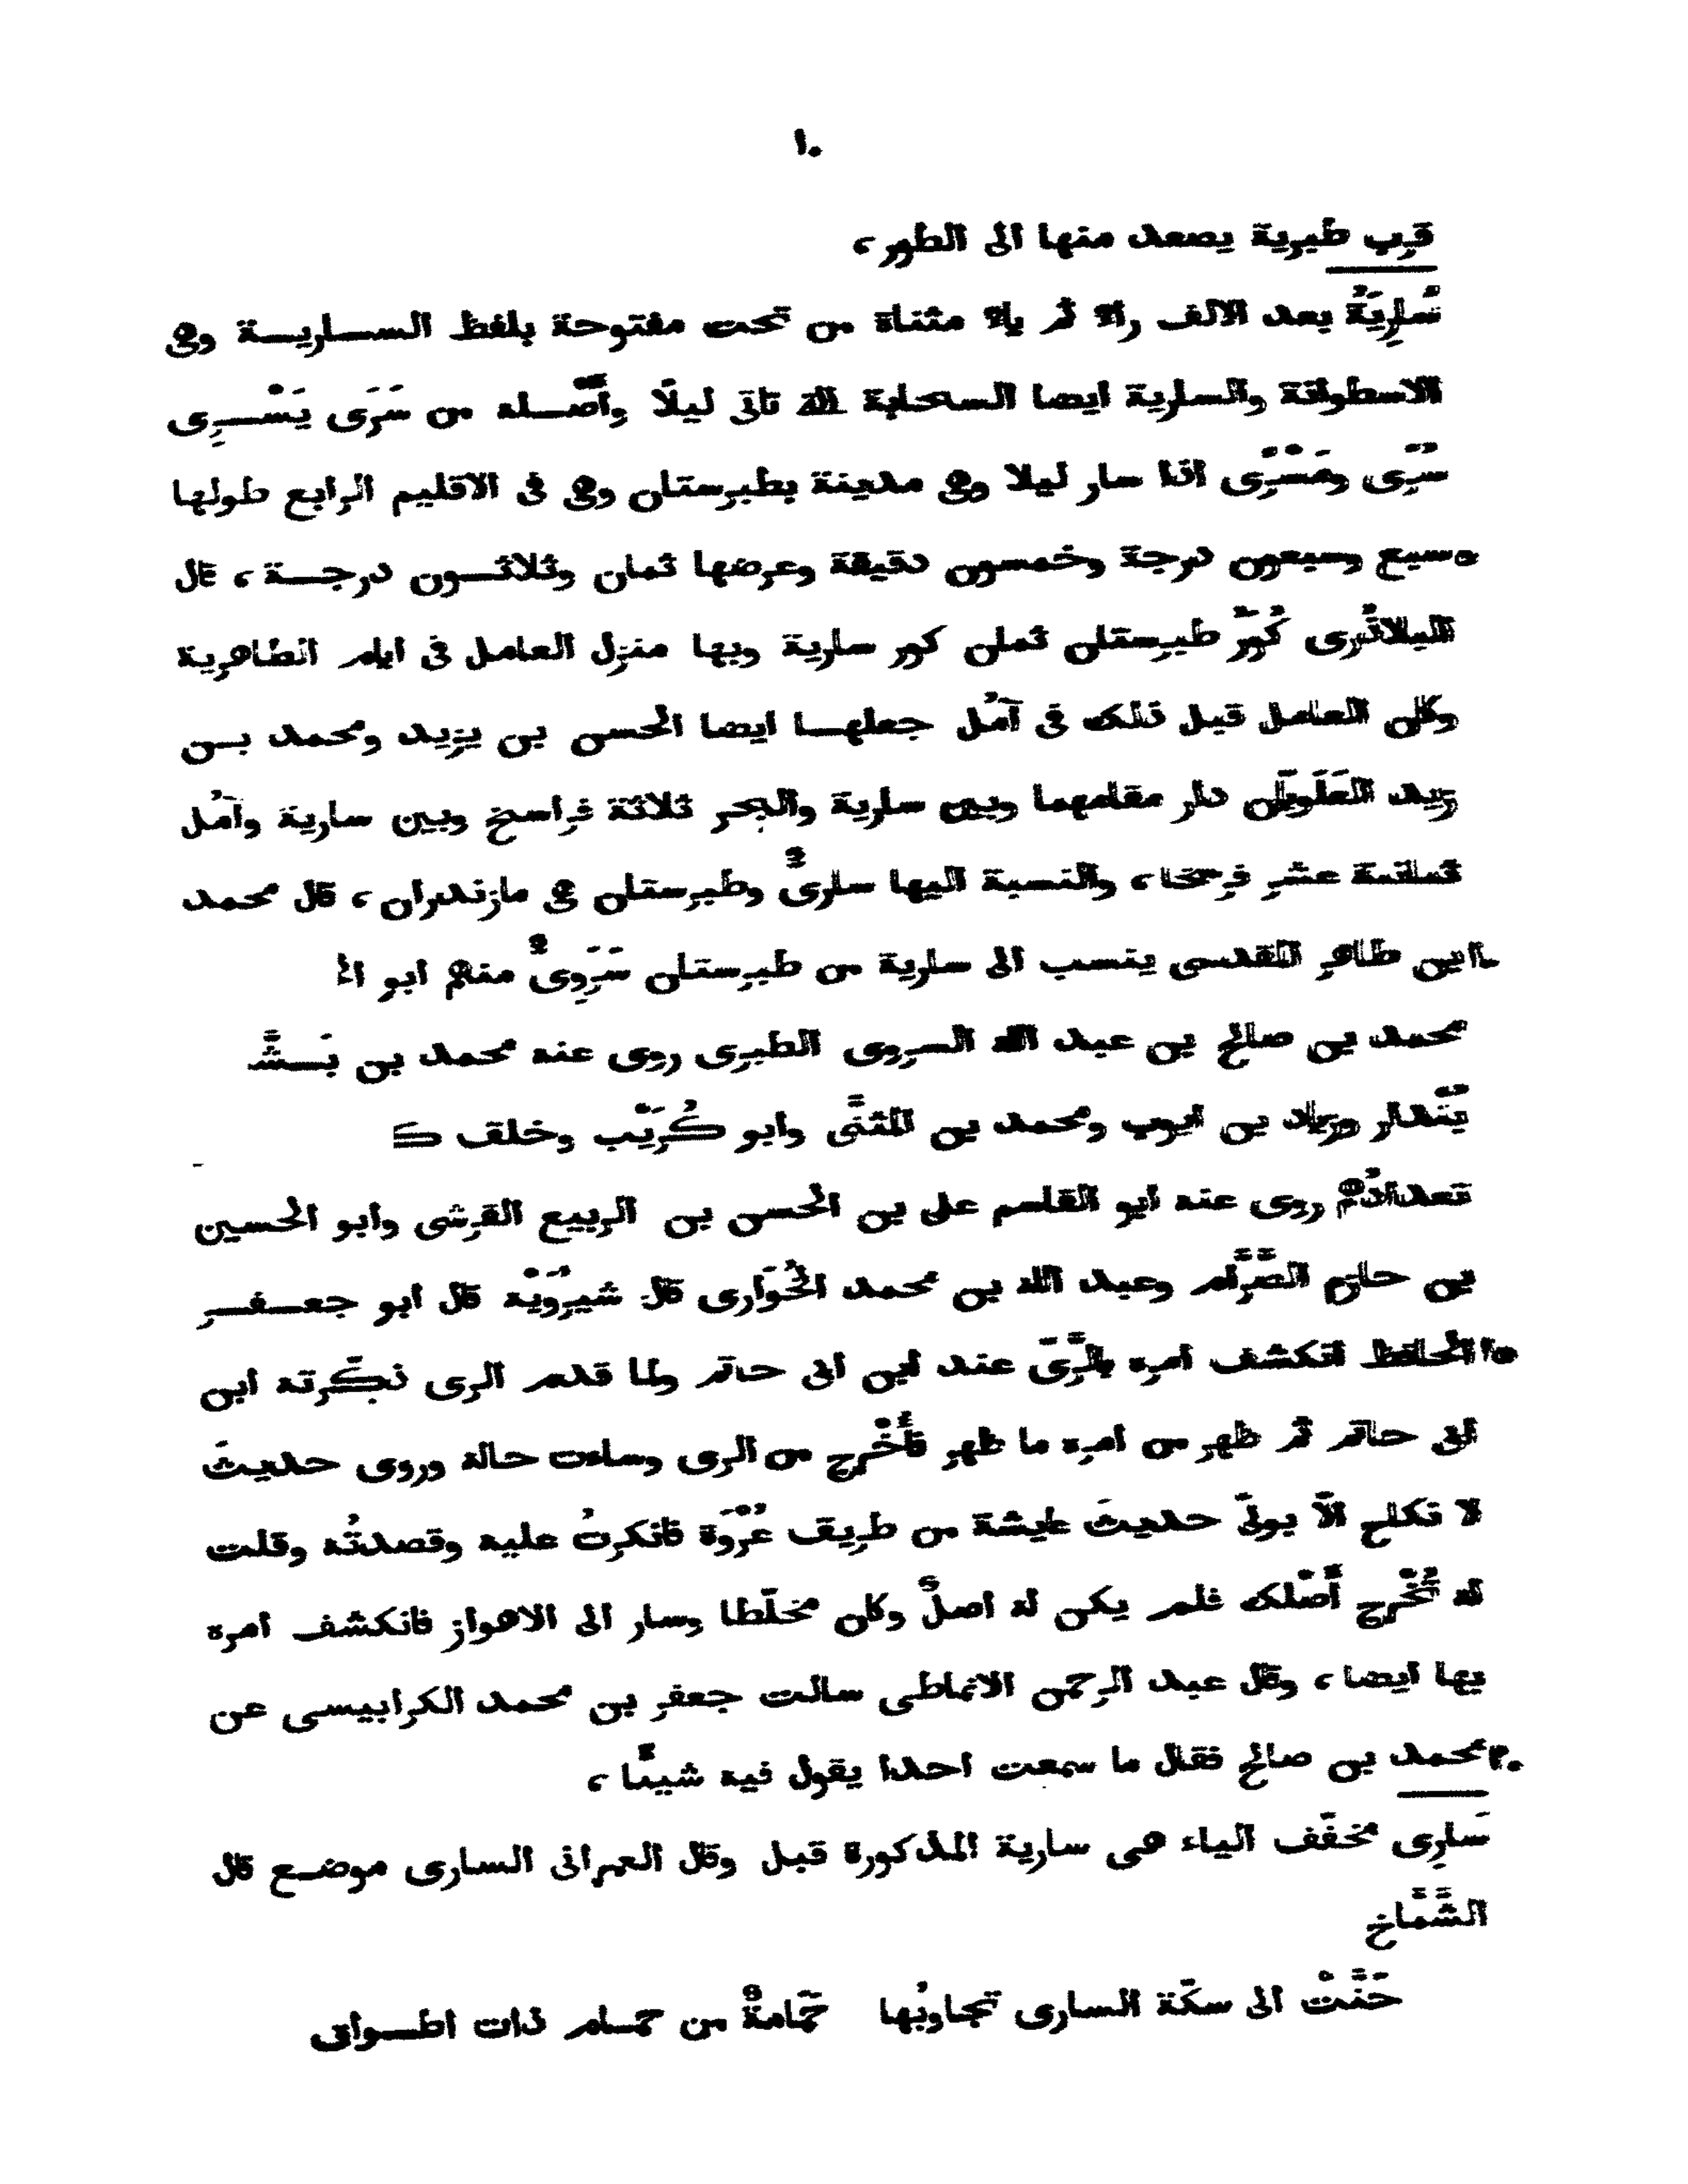 ١٠
قرب طبرية يصعد منها الى الطور،
سَارِيَةُ بعد الالف راء ثم ياء مثناة من تحت مفتوحة بلفظ الســاريــة وهى
الاسطوانة والسارية ايضا السحابة الله تاتى ليلًا وأَصْــله من سَرَى يَسْــرِى
سُرًى ومَسْرًى اذا سار ليلا وهى مدينة بطبرستان وهى فى الاقليم الرابع طولها
٥ سبع وسبعون درجة وخمسون دقيقة وعرضها ثمان وثلاثــون درجــة، قال
البلاذُرى كُوَرُ طبرستان ثمان كور سارية وبها منزل العامل فى ايام الطاهرية
وكان العامل قبل ذلك فى آمُل جعلهــا ايضا الحسن بن يزيد ومحمد بــن
زيد العَلَويَّان دار مقامهما وبين سارية والبحر ثلاثة فراسخ وبين سارية وآمُل
ثمانية عشر فرسخا، والنسبة اليها سارىٌّ وطبرستان هى مازندران، قال محمد
١٠ ابن طاهر المقدسى ينسب الى سارية من طبرستان سَرَوِىٌّ منهم ابو
محمد بن صالح بن عبد الله السروى الطبرى روى عنه محمد بن
بُنْدار وزياد بن ايوب ومحمد بن المثنَّى وابو كُرَيْب وخلف
تعدادُهم روى عنه ابو القاسم على بن الحسن بن الربيع القرشى وابو الحسين
بن حازم الصَّرَّام وعبد الله بن محمد الخُوَارى قال شيرُوَيْه قال ابو جعــفــر
١٥ الحافظ انكشف امره بالرَّىّ عند ابن ابى حاتم ولما قدم الرى ذكّرته ابن
ابى حاتم ثم ظهر من امره ما ظهر فأُخْرج من الرى وساءت حاله وروى حديثَ
لا نكاح الّا بولىّ حديثَ عايشة من طريق عُرْوَة فانكرتُ عليه وقصدتُه وقلت
له تُخْرج أَصْلك فلم يكن له اصلٌ وكان مخلّطا وسار الى الاهواز فانكشف امره
بها ايضا، وقال عبد الرحمن الانماطى سالت جعفر بن محمد الكرابيسى عن
٢٠ محمد بن صالح فقال ما سمعت احدا يقول فيه شيئًا،
سَارِى مخفّف الياء هى سارية المذكورة قبل وقال العمرانى السارى موضــع قال
الشَّمَّاخ
حَنَّتْ الى سكّة السارى تجاوبُها حَمَامةٌ من حمــام ذات اطــواق